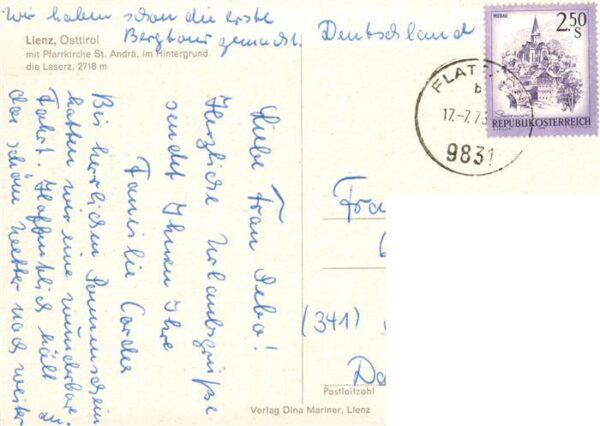 Wir haben schon die erste
Bergtour gemacht.
Lienz, Osttirol
mit Pfarrkirche St. Andrä, im Hintergrund
die Laserz, 2718 m
Deutschland
MURAU
2.50
S
REPUBLIK ÖSTERREICH
FLATT
b
17.-7.75
9831
Liebe Frau Debo!
Herzliche Urlaubsgrüße
sendet Ihnen Ihre
Familie Cordes
Bei herrlichem Sonnenschein
hatten wir eine wunderbare
Fahrt. Hoffentlich hält
das schöne Wetter noch weiter
an.
Fra
(341)
Postleitzahl
Verlag Dina Mariner, Lienz